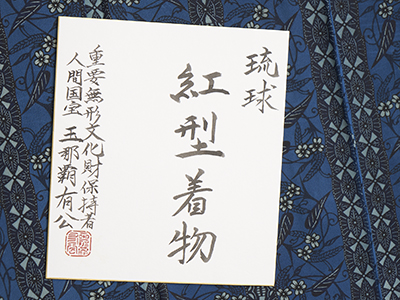 琉球
紅型着物
重要無形文化財保持者
人間国宝 玉那覇有公